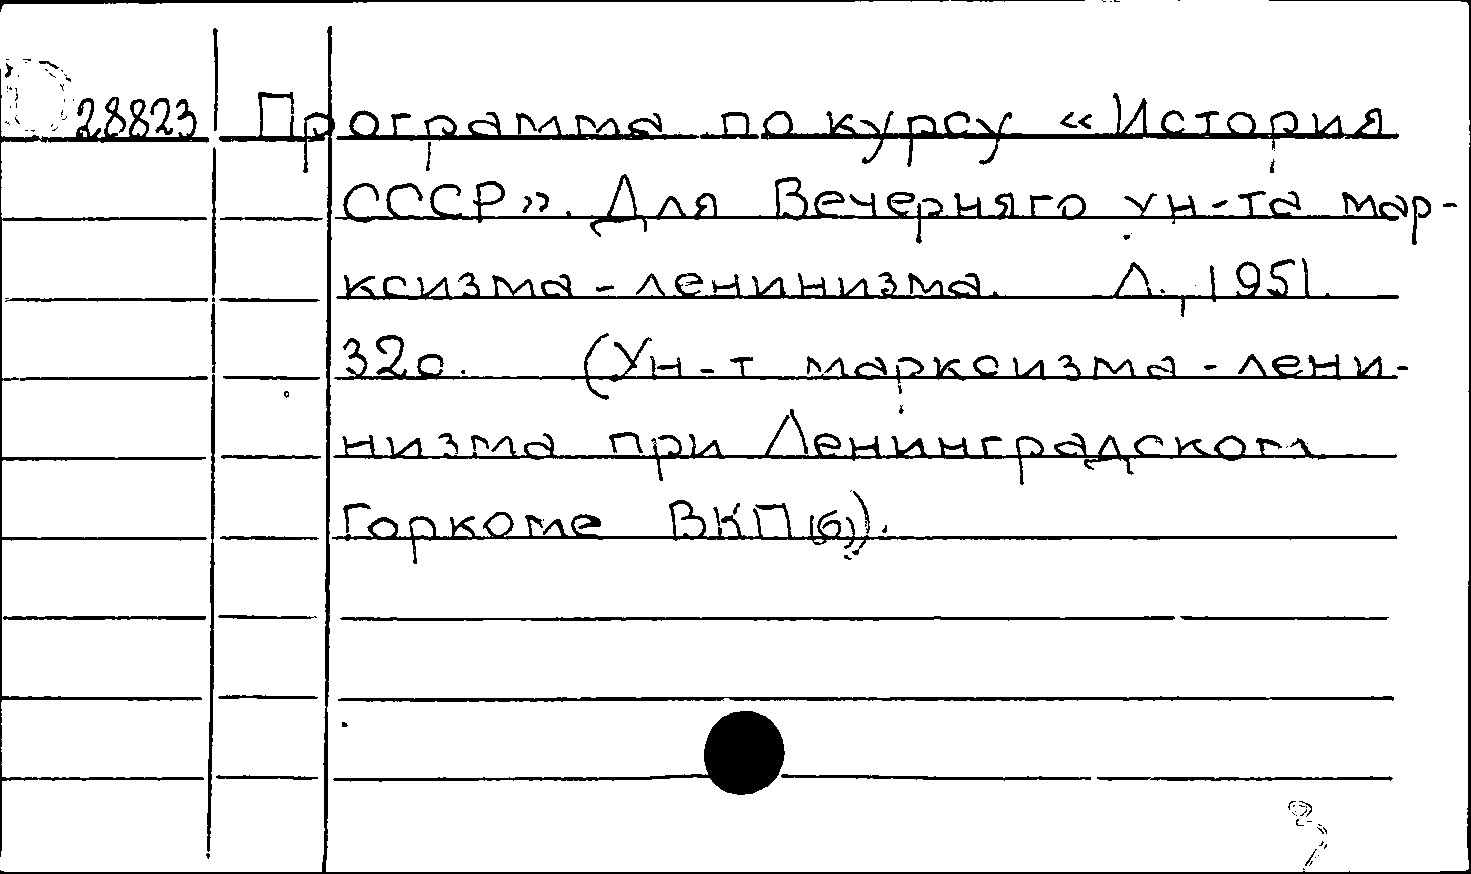 28823 Программа по курсу «История
СССР». Для Вечерняго ун-та мар-
ксизма-ленинизма. Л., 1951.
32с. (Ун-т марксизма-лени-
низма при Ленинградском
Горкоме ВКП(б)).